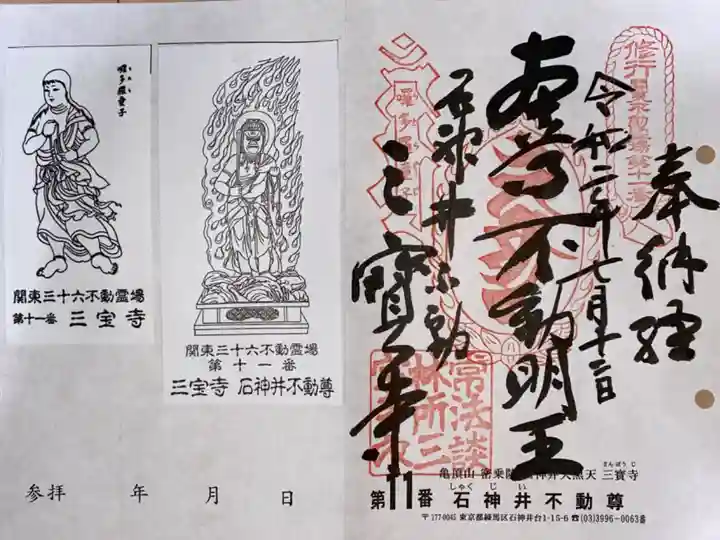 嚩多羅童子
関東三十六不動霊場
第十一番 三宝寺
関東三十六不動霊場
第十一番
三宝寺 石神井不動尊
参拝 年 月 日
奉納経
令和二年七月十二日
本尊不動明王
石神井不動
三寶寺
常法談
林所三
亀頂山 密乗院 石神井大黒天 三寶寺
さんぽうじ
第11番 石神井不動尊
しゃくじい
〒177-0045 東京都練馬区石神井台1-15-6 ☎(03)3996-0063番